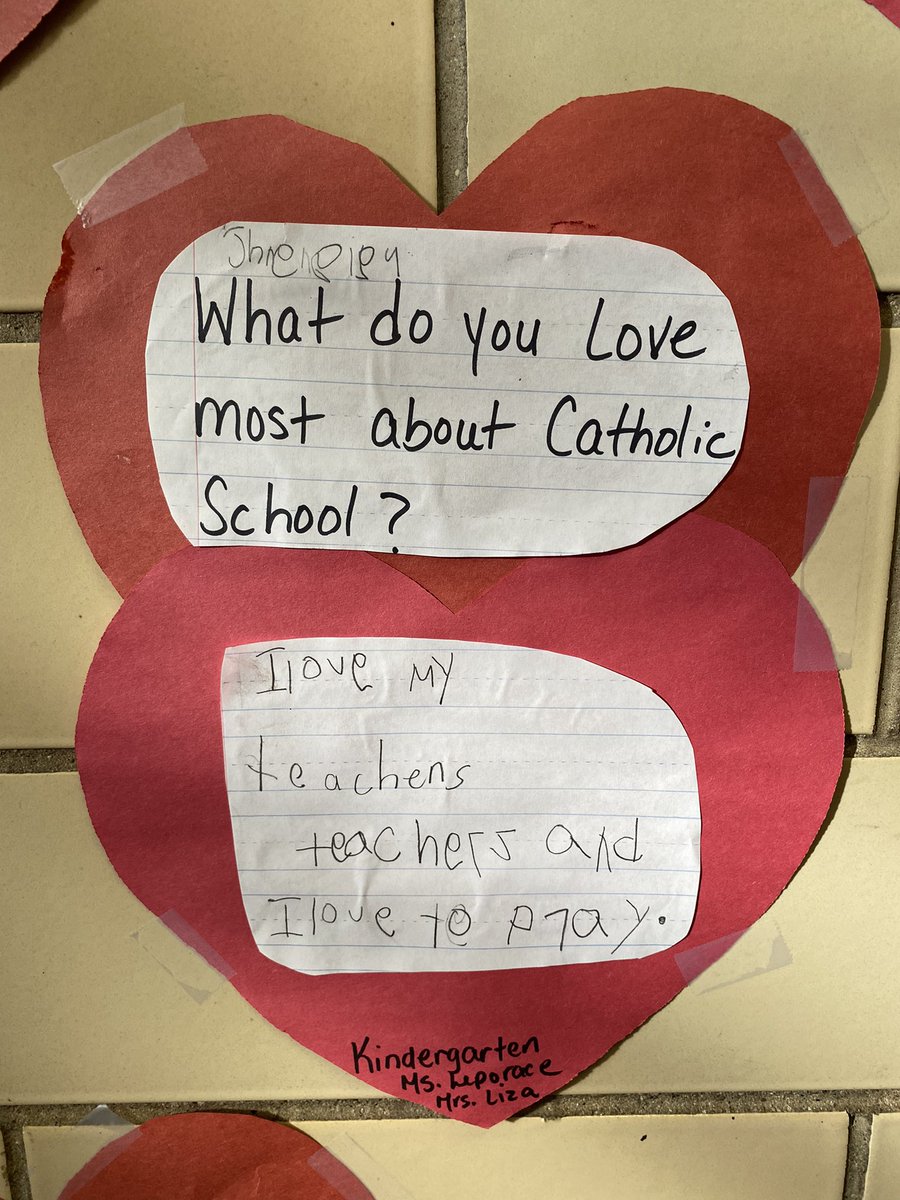 What do you Love
most about Catholic
School?
I love my
teachens
teachers and
I love to pray.
Kindergarten
Ms. Leporace
Mrs. Liza